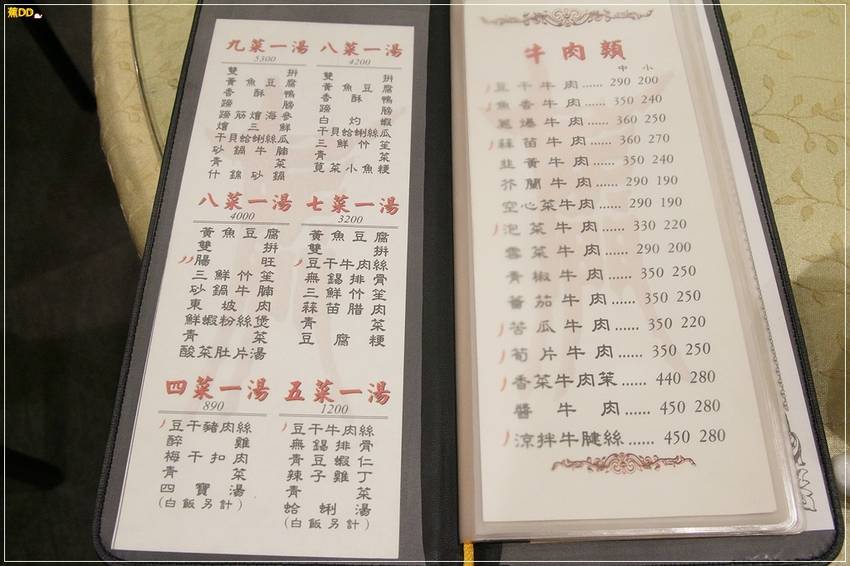 蕉DD
九菜一湯
5300
雙拼
黃魚豆腐
香酥鴨
蹄膀
蹄筋燴海參
燴三鮮
干貝蛤蜊絲瓜
砂鍋牛腩
青菜
什錦砂鍋
八菜一湯
4200
雙拼
黃魚豆腐
香酥鴨
蹄膀
白灼蝦
干貝蛤蜊絲瓜
三鮮竹笙
青菜
莧菜小魚粳
八菜一湯
4000
黃魚豆腐
雙拼
腸旺
三鮮竹笙
砂鍋牛腩
東坡肉
鮮蝦粉絲煲
青菜
酸菜肚片湯
七菜一湯
3200
黃魚豆腐
雙拼
豆干牛肉絲
無錫排骨
三鮮竹笙
蒜苗腊肉
青菜
豆腐粳
四菜一湯
890
豆干豬肉絲
醉雞
梅干扣肉
青菜
四寶湯
(白飯另計)
五菜一湯
1200
豆干牛肉絲
無錫排骨
青豆蝦仁
辣子雞丁
青菜
蛤蜊湯
(白飯另計)
牛肉類
中 小
豆干牛肉...... 290 200
魚香牛肉...... 350 240
蔥爆牛肉...... 360 250
蒜苗牛肉...... 360 270
韭黃牛肉...... 350 240
芥蘭牛肉...... 290 190
空心菜牛肉...... 290 190
泡菜牛肉...... 330 220
雪菜牛肉...... 290 200
青椒牛肉...... 350 250
蕃茄牛肉...... 350 250
苦瓜牛肉...... 350 220
筍片牛肉...... 350 250
香菜牛肉茉...... 440 280
醬牛肉...... 450 280
涼拌牛腱絲...... 450 280